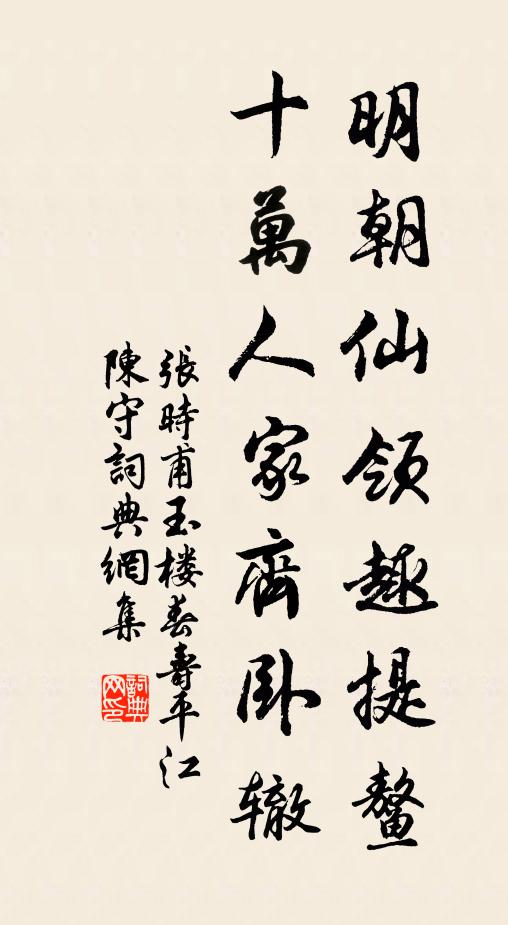 明朝仙領趣提鰲
十萬人家齊卧辙
張時甫玉楼春壽平江
陳守詞典網集
詞典网印